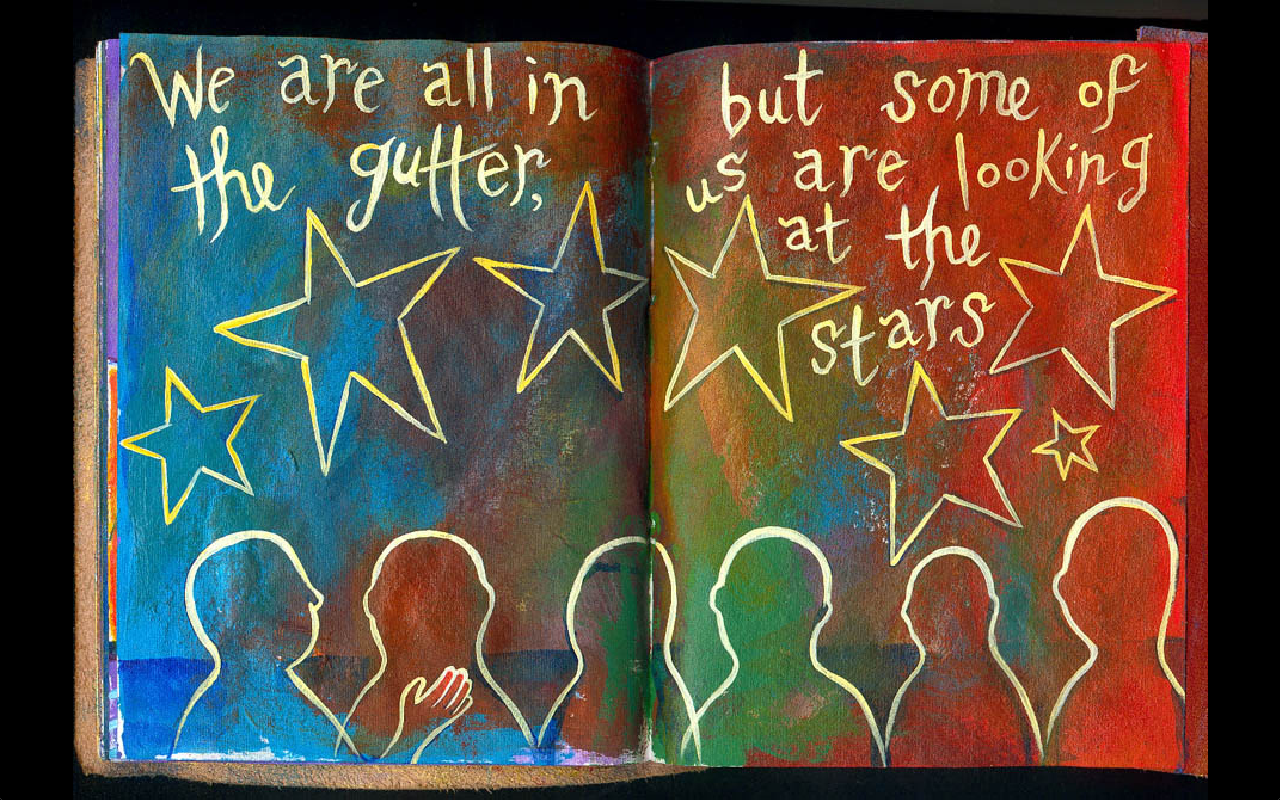 We are all in
the gutter,
but some of
us are looking
at the
stars